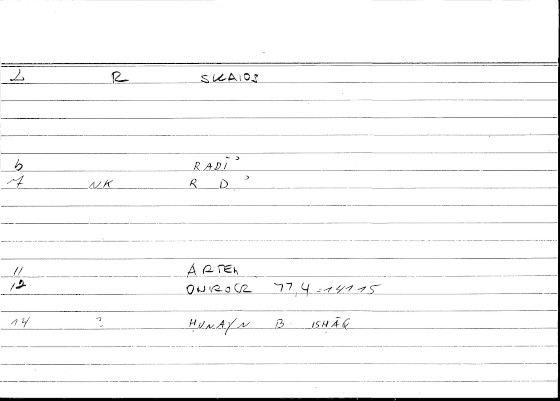 2 R SKAIOS
6 RADĪʾ
7 NK R D ʾ
11 ARTEM
12 ONIROCR 77,4-14115
14 ? ḤUNAYN B ISḤĀQ